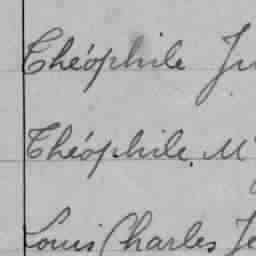 Théophile
Théophile M
Louis Charles